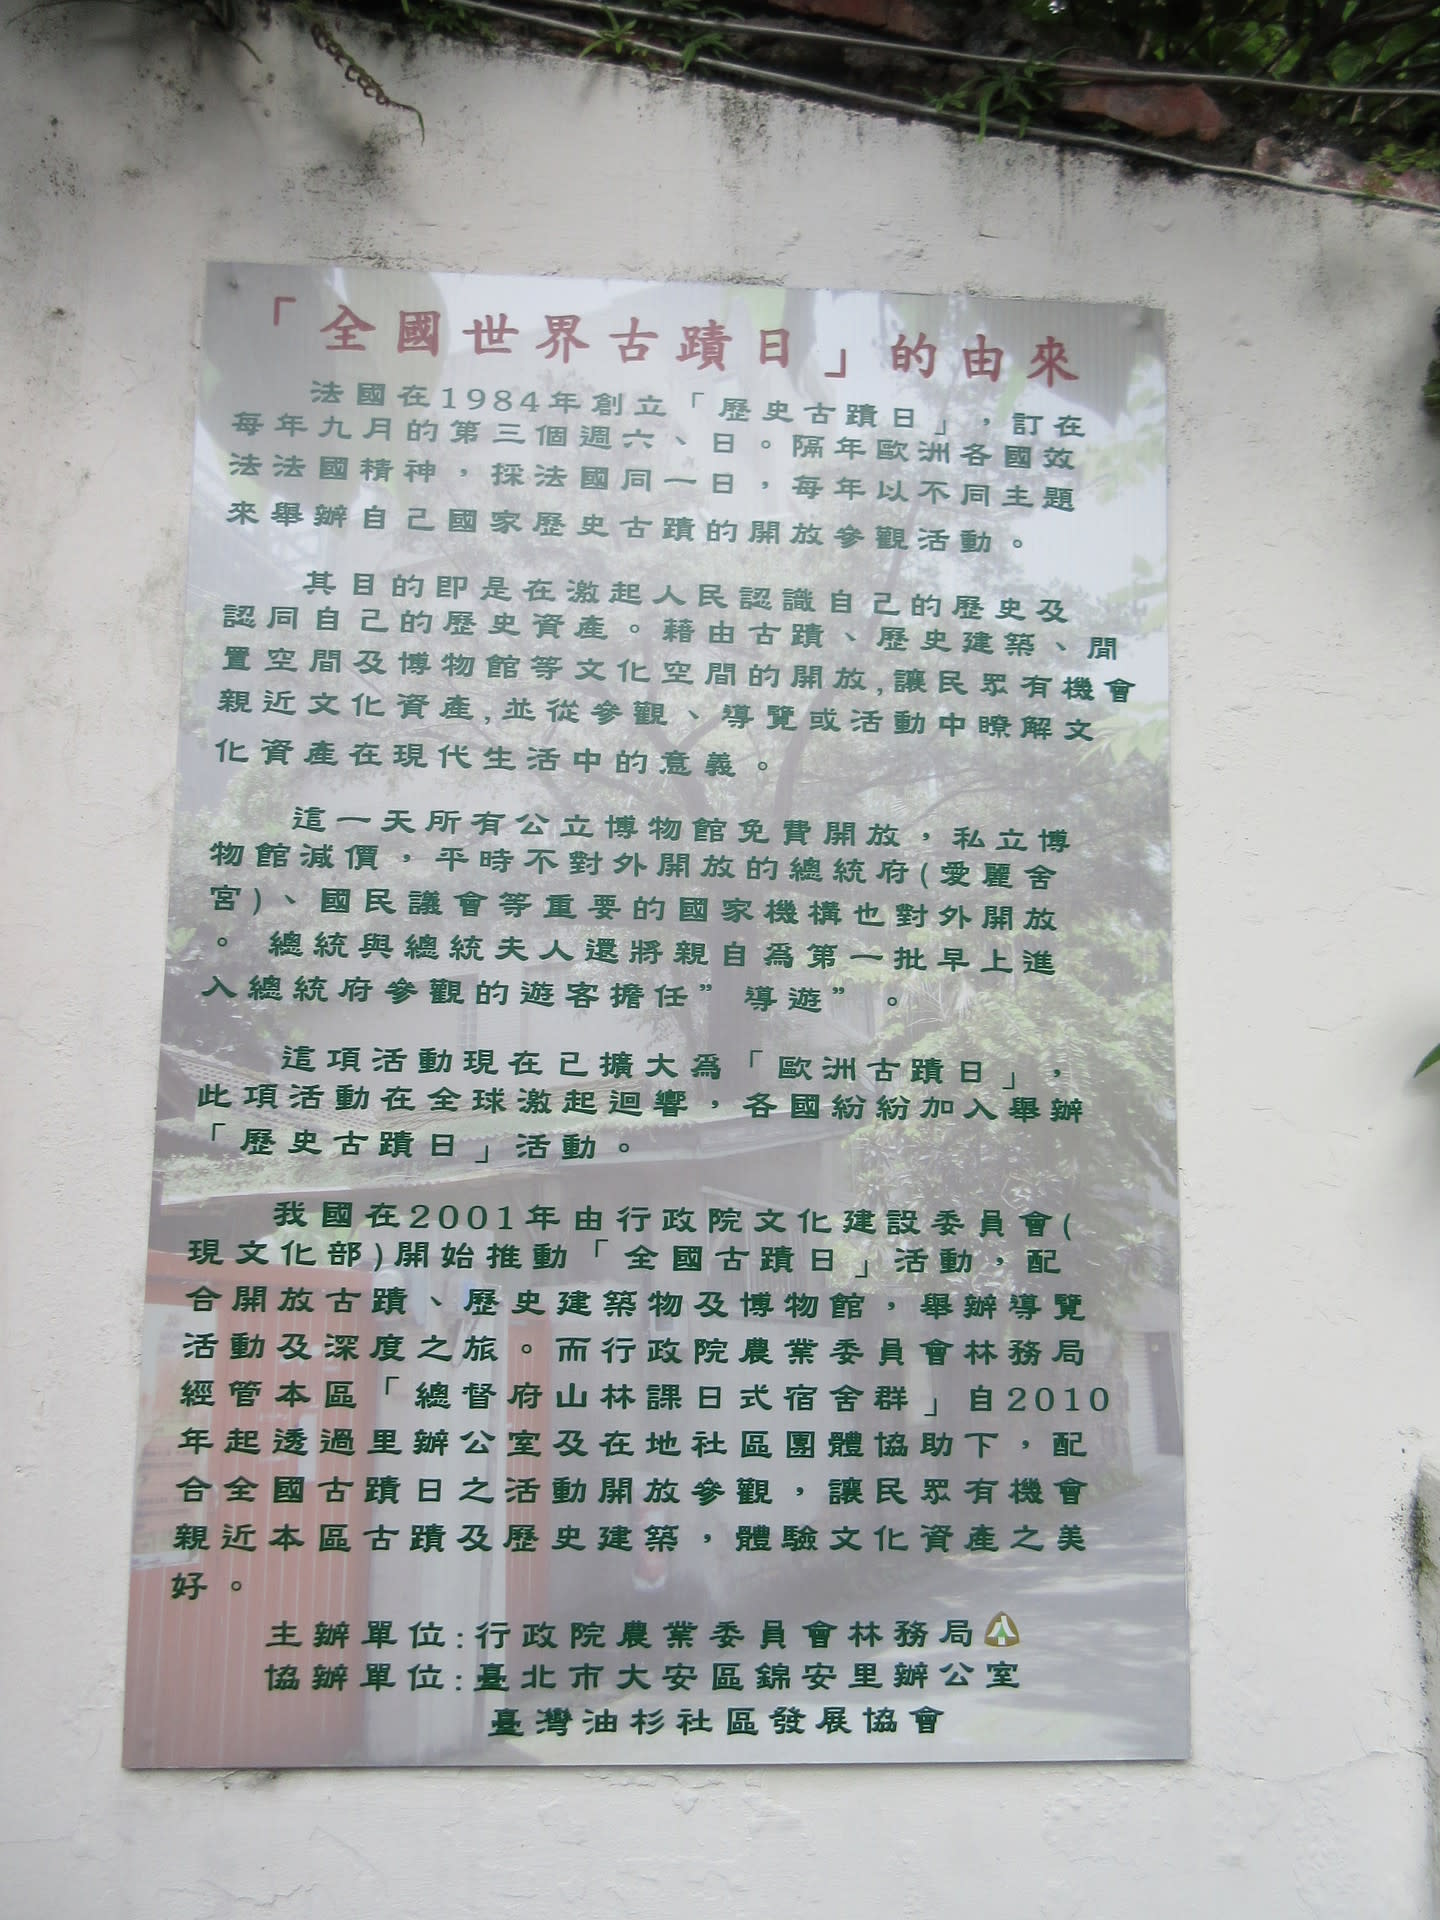 「全國世界古蹟日」的由來
法國在1984年創立「歷史古蹟日」，訂在
每年九月的第三個週六、日。隔年歐洲各國效
法法國精神，採法國同一日，每年以不同主題
來舉辦自己國家歷史古蹟的開放參觀活動。
其目的即是在激起人民認識自己的歷史及
認同自己的歷史資產。藉由古蹟、歷史建築、閒
置空間及博物館等文化空間的開放,讓民眾有機會
親近文化資產,並從參觀、導覽或活動中瞭解文
化資產在現代生活中的意義。
這一天所有公立博物館免費開放，私立博
物館減價，平時不對外開放的總統府(愛麗舍
宮)、國民議會等重要的國家機構也對外開放
。總統與總統夫人還將親自為第一批早上進
入總統府參觀的遊客擔任”導遊”。
這項活動現在已擴大為「歐洲古蹟日」，
此項活動在全球激起迴響，各國紛紛加入舉辦
「歷史古蹟日」活動。
我國在2001年由行政院文化建設委員會(
現文化部)開始推動「全國古蹟日」活動，配
合開放古蹟、歷史建築物及博物館，舉辦導覽
活動及深度之旅。而行政院農業委員會林務局
經管本區「總督府山林課日式宿舍群」自2010
年起透過里辦公室及在地社區團體協助下，配
合全國古蹟日之活動開放參觀，讓民眾有機會
親近本區古蹟及歷史建築，體驗文化資產之美
好。
主辦單位:行政院農業委員會林務局
協辦單位:臺北市大安區錦安里辦公室
臺灣油杉社區發展協會